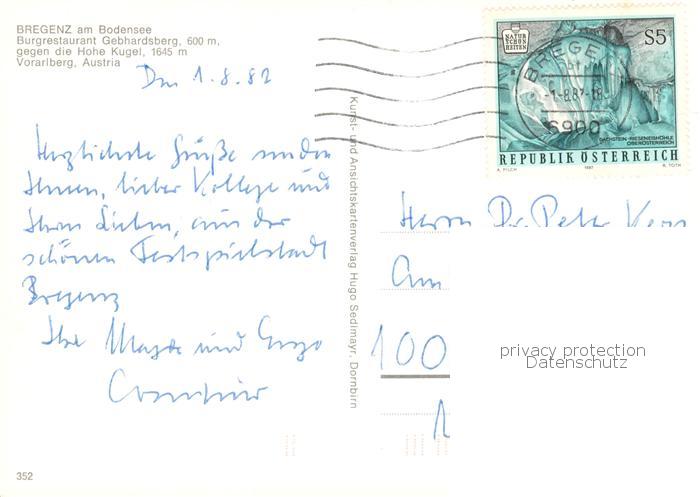 BREGENZ am Bodensee
Burgrestaurant Gebhardsberg, 600 m,
gegen die Hohe Kugel, 1645 m
Vorarlberg, Austria
1.8.82
Herzlichste Grüße senden
Ihnen, lieber Kollege und
Ihren Lieben, aus der
schönen Festspielstadt
Bregenz
Ihre und
Kunst- und Ansichtskartenverlag Hugo Sedlmayr, Dornbirn
352
NATUR
SCHÖN
HEITEN
S5
BREGE
6900
DACHSTEIN-RIESENEISHÖHLE
OBERÖSTERREICH
REPUBLIK ÖSTERREICH
A. PILCH 1987 R. TOTH
Herrn Dr. Peter
Am
100
privacy protection
Datenschutz